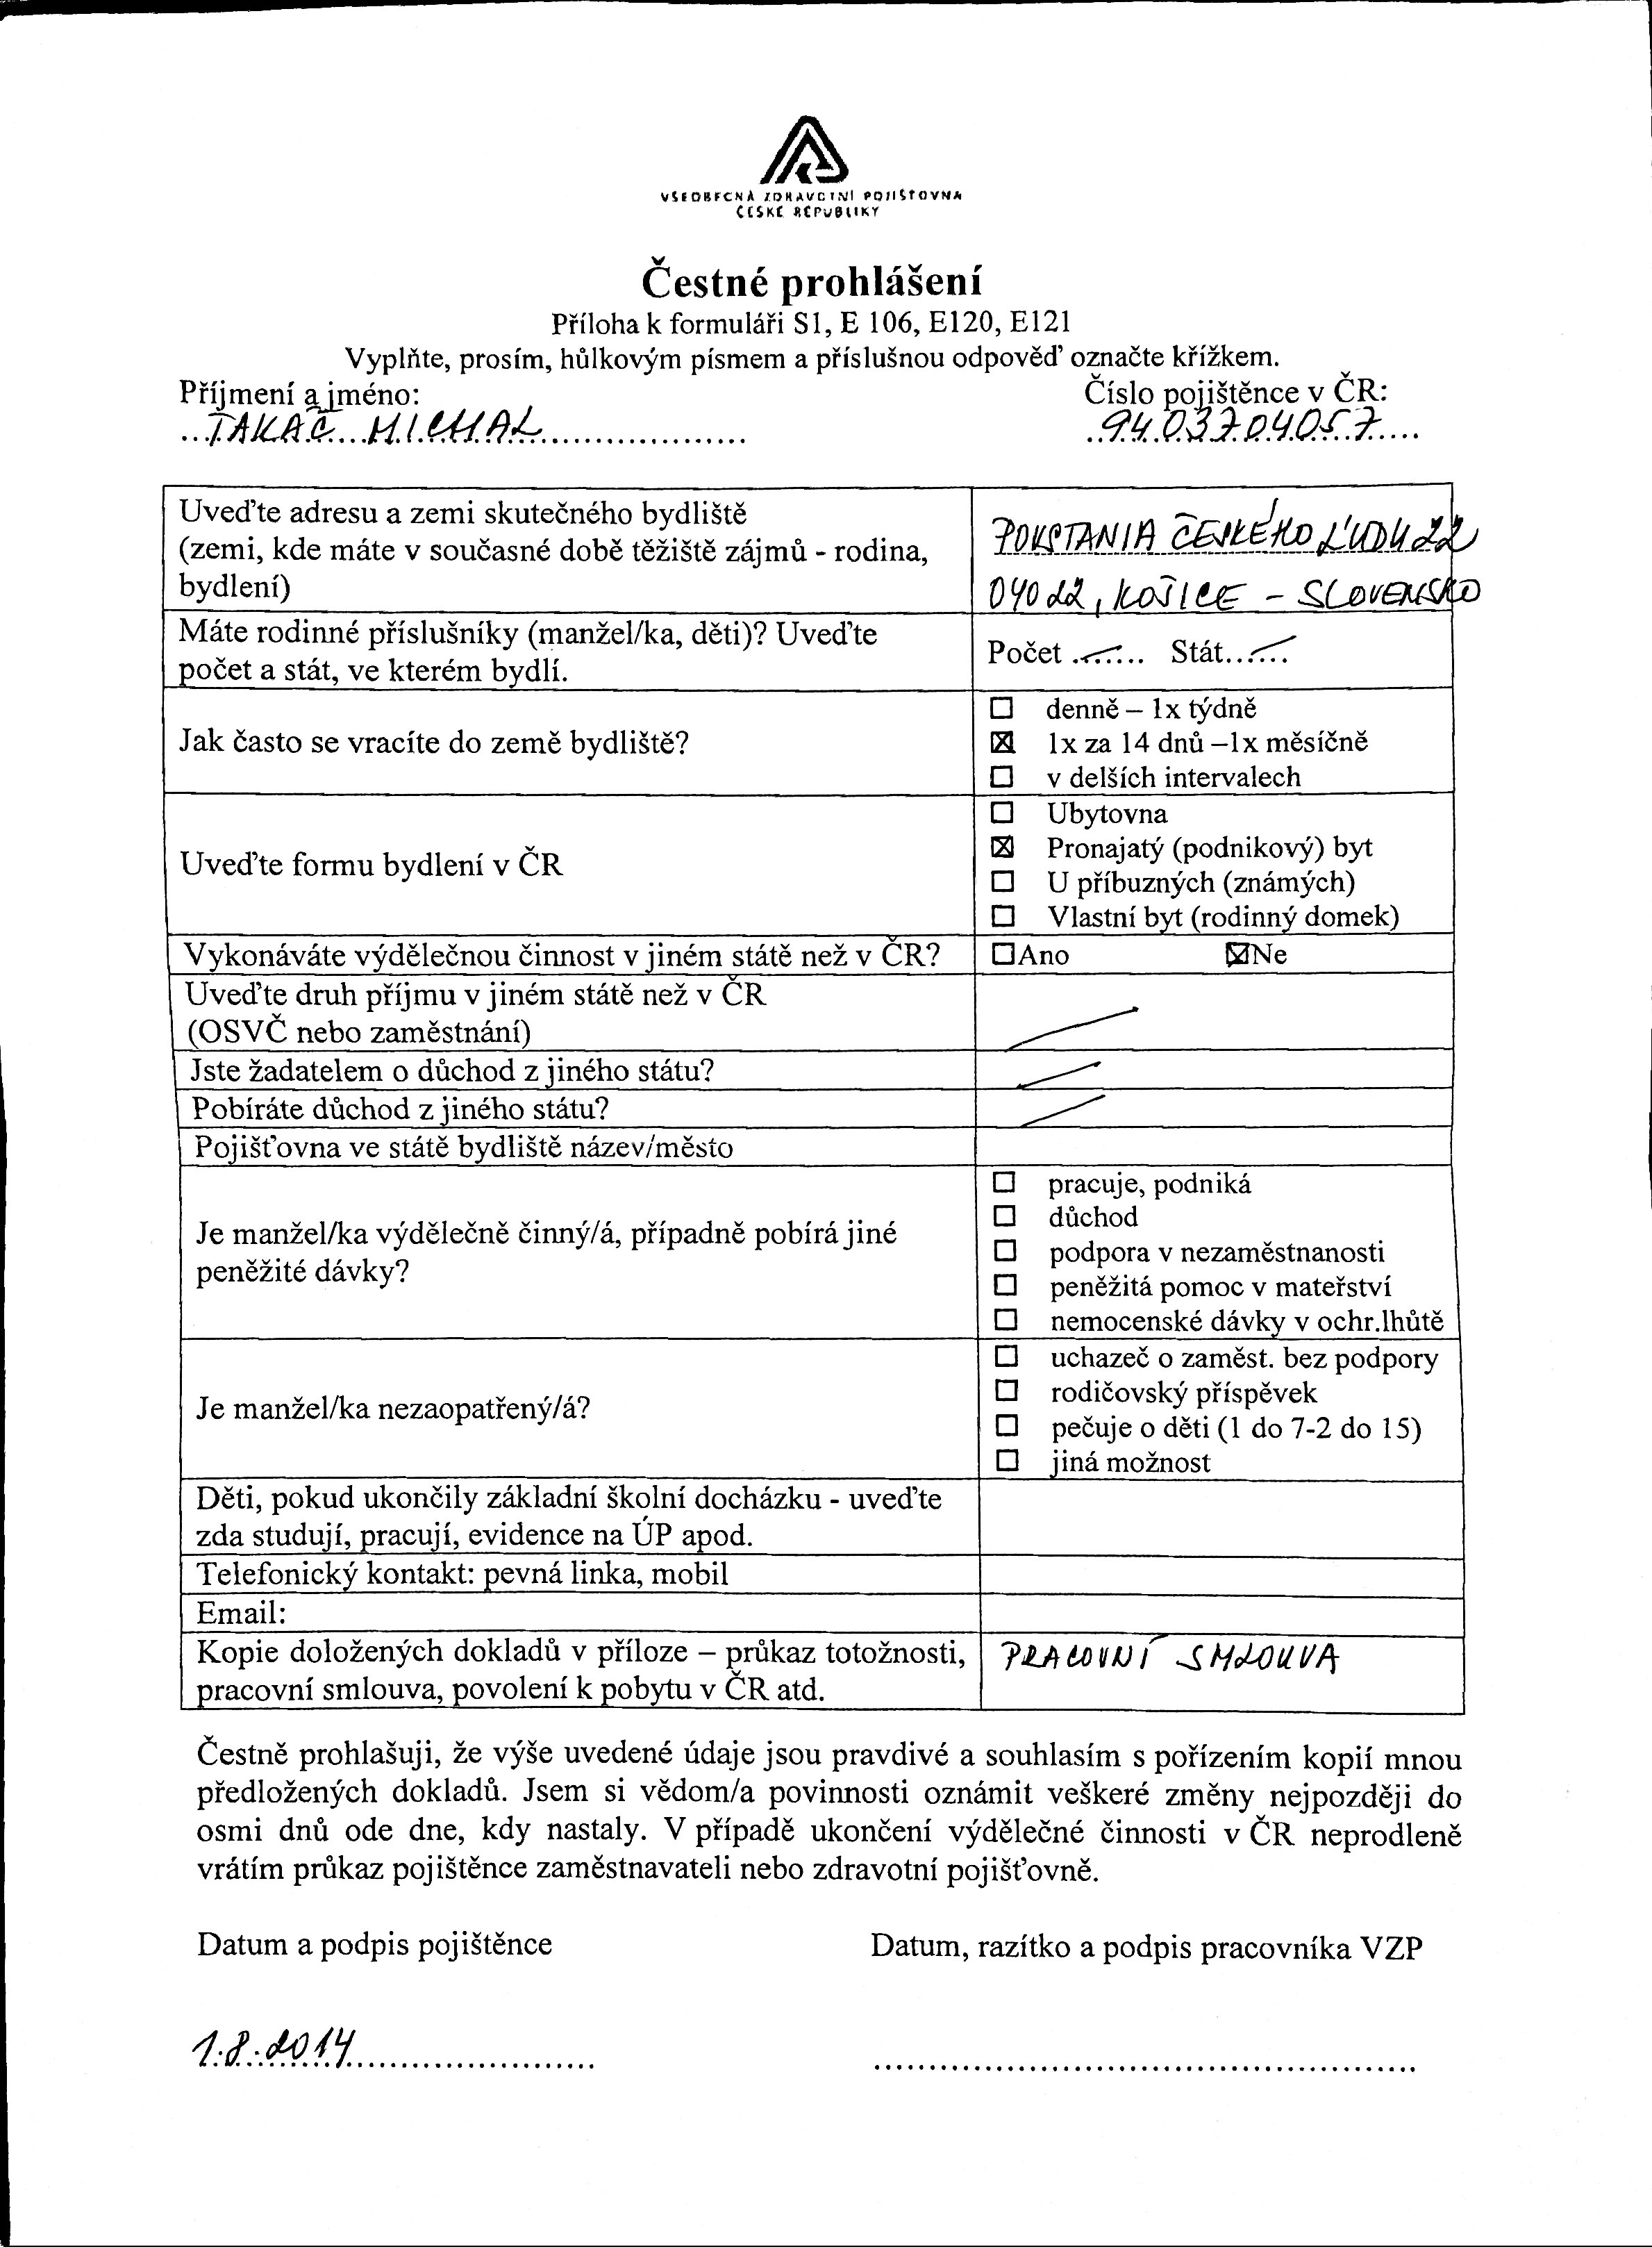 VŠEOBECNÁ ZDRAVOTNÍ POJIŠŤOVNA
ČESKÉ REPUBLIKY
Čestné prohlášení
Příloha k formuláři S1, E 106, E120, E121
Vyplňte, prosím, hůlkovým písmem a příslušnou odpověď označte křížkem.
Příjmení a jméno: Číslo pojištěnce v ČR:
TAKAČ MICHAL 9403704057
Uveďte adresu a zemi skutečného bydliště
(zemi, kde máte v současné době těžiště zájmů - rodina,
bydlení)
POVSTANIA ČESKÉHO ĽUDU 22
04022, KOŠICE - SLOVENSKO
Máte rodinné příslušníky (manžel/ka, děti)? Uveďte
počet a stát, ve kterém bydlí.
Počet ....... Stát.......
Jak často se vracíte do země bydliště?
☐ denně – 1x týdně
☒ 1x za 14 dnů –1x měsíčně
☐ v delších intervalech
Uveďte formu bydlení v ČR
☐ Ubytovna
☒ Pronajatý (podnikový) byt
☐ U příbuzných (známých)
☐ Vlastní byt (rodinný domek)
Vykonáváte výdělečnou činnost v jiném státě než v ČR? ☐Ano ☒Ne
Uveďte druh příjmu v jiném státě než v ČR
(OSVČ nebo zaměstnání)
Jste žadatelem o důchod z jiného státu?
Pobíráte důchod z jiného státu?
Pojišťovna ve státě bydliště název/město
Je manžel/ka výdělečně činný/á, případně pobírá jiné
peněžité dávky?
☐ pracuje, podniká
☐ důchod
☐ podpora v nezaměstnanosti
☐ peněžitá pomoc v mateřství
☐ nemocenské dávky v ochr.lhůtě
Je manžel/ka nezaopatřený/á?
☐ uchazeč o zaměst. bez podpory
☐ rodičovský příspěvek
☐ pečuje o děti (1 do 7-2 do 15)
☐ jiná možnost
Děti, pokud ukončily základní školní docházku - uveďte
zda studují, pracují, evidence na ÚP apod.
Telefonický kontakt: pevná linka, mobil
Email:
Kopie doložených dokladů v příloze – průkaz totožnosti,
pracovní smlouva, povolení k pobytu v ČR atd.
PRACOVNÍ SMLOUVA
Čestně prohlašuji, že výše uvedené údaje jsou pravdivé a souhlasím s pořízením kopií mnou
předložených dokladů. Jsem si vědom/a povinnosti oznámit veškeré změny nejpozději do
osmi dnů ode dne, kdy nastaly. V případě ukončení výdělečné činnosti v ČR neprodleně
vrátím průkaz pojištěnce zaměstnavateli nebo zdravotní pojišťovně.
Datum a podpis pojištěnce Datum, razítko a podpis pracovníka VZP
1.8.2014